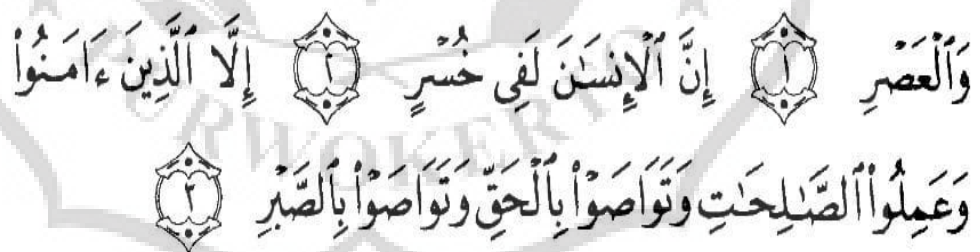 وَٱلْعَصْرِ ١ إِنَّ ٱلْإِنسَـٰنَ لَفِى خُسْرٍ ٢ إِلَّا ٱلَّذِينَ ءَامَنُوا۟
وَعَمِلُوا۟ ٱلصَّـٰلِحَـٰتِ وَتَوَاصَوْا۟ بِٱلْحَقِّ وَتَوَاصَوْا۟ بِٱلصَّبْرِ ٣